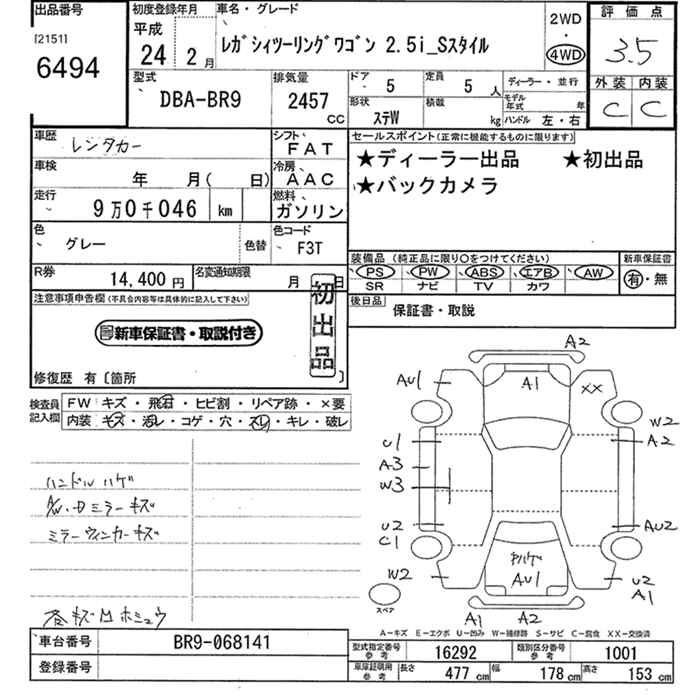 出品番号
[2151]
6494
初度登録年月
平成
24 2月
車名・グレード
レガシィツーリングワゴン 2.5i_Sスタイル
2WD
・
4WD
評価点
3.5
外装 内装
C C
型式
DBA-BR9
排気量
2457 CC
ドア 5
定員 5 人
形状 ステW
積載 kg
ディーラー・並行
モデル年式 年
ハンドル 左・右
車歴
レンタカー
シフト
FAT
車検
年 月( 日)
冷房
AAC
走行
9万0千046 km
燃料
ガソリン
色
グレー
色替
色コード
F3T
R券
14,400円
名変通知期限
月 日
セールスポイント(正常に機能するものに限ります)
★ディーラー出品 ★初出品
★バックカメラ
装備品 (純正品に限り○をつけてください)
PS PW ABS エアB AW
SR ナビ TV カワ
新車保証書
有・無
後日品
保証書・取説
注意事項申告欄(不具合内容等は具体的に記入して下さい)
新車保証書・取説付き
初出品
修復歴 有〔箇所
検査員記入欄
FW キズ・飛石・ヒビ割・リペア跡・×要
内装 キズ・汚レ・コゲ・穴・スレ・キレ・破レ
ハンドルハゲ
A/W・Dミラーキズ
ミラーウィンカーキズ
各キズ凹ホシュウ
A2
AU1
A1
XX
W2
U1
A2
A3
W3
U2
AU2
C1
PハゲAU1
W2
U2
A1
スペア
A1
A2
A-キズ E-エクボ U-凹み W-補修跡 S-サビ C-腐食 XX-交換済
車台番号
BR9-068141
登録番号
型式指定番号 参考
16292
類別区分番号 参考
1001
車庫証明用 参考
長さ 477 cm
幅 178 cm
高さ 153 cm